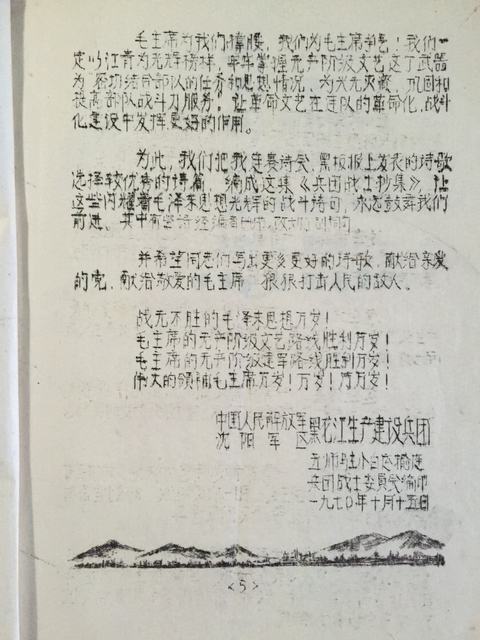 毛主席为我们撑腰，我们为毛主席争气！我们一
定以江青为光辉榜样，牢牢掌握无产阶级文艺这个武器
为密切结合部队的任务和思想情况，为兴无灭资，巩固和
提高部队战斗力服务！让革命文艺在连队的革命化，战斗
化建设中发挥更好的作用。
为此，我们把我连赛诗会，黑板报上发表的诗歌
选择较优秀的诗篇，编成这集《兵团战士抄集》，让
这些闪耀着毛泽东思想光辉的战斗诗句，永远鼓舞我们
前进。其中有些诗经编者
并希望同志们写出更多更好的诗歌，献给亲爱
的党，献给敬爱的毛主席 狠狠打击人民的敌人。
战无不胜的毛泽东思想万岁！
毛主席的无产阶级文艺路线胜利万岁！
毛主席的无产阶级建军路线胜利万岁！
伟大的领袖毛主席万岁！万岁！万万岁！
中国人民解放军
沈阳军区
黑龙江生产建设兵团
五师
兵团战士委员会编印
一九七〇年十月十五日
<5>